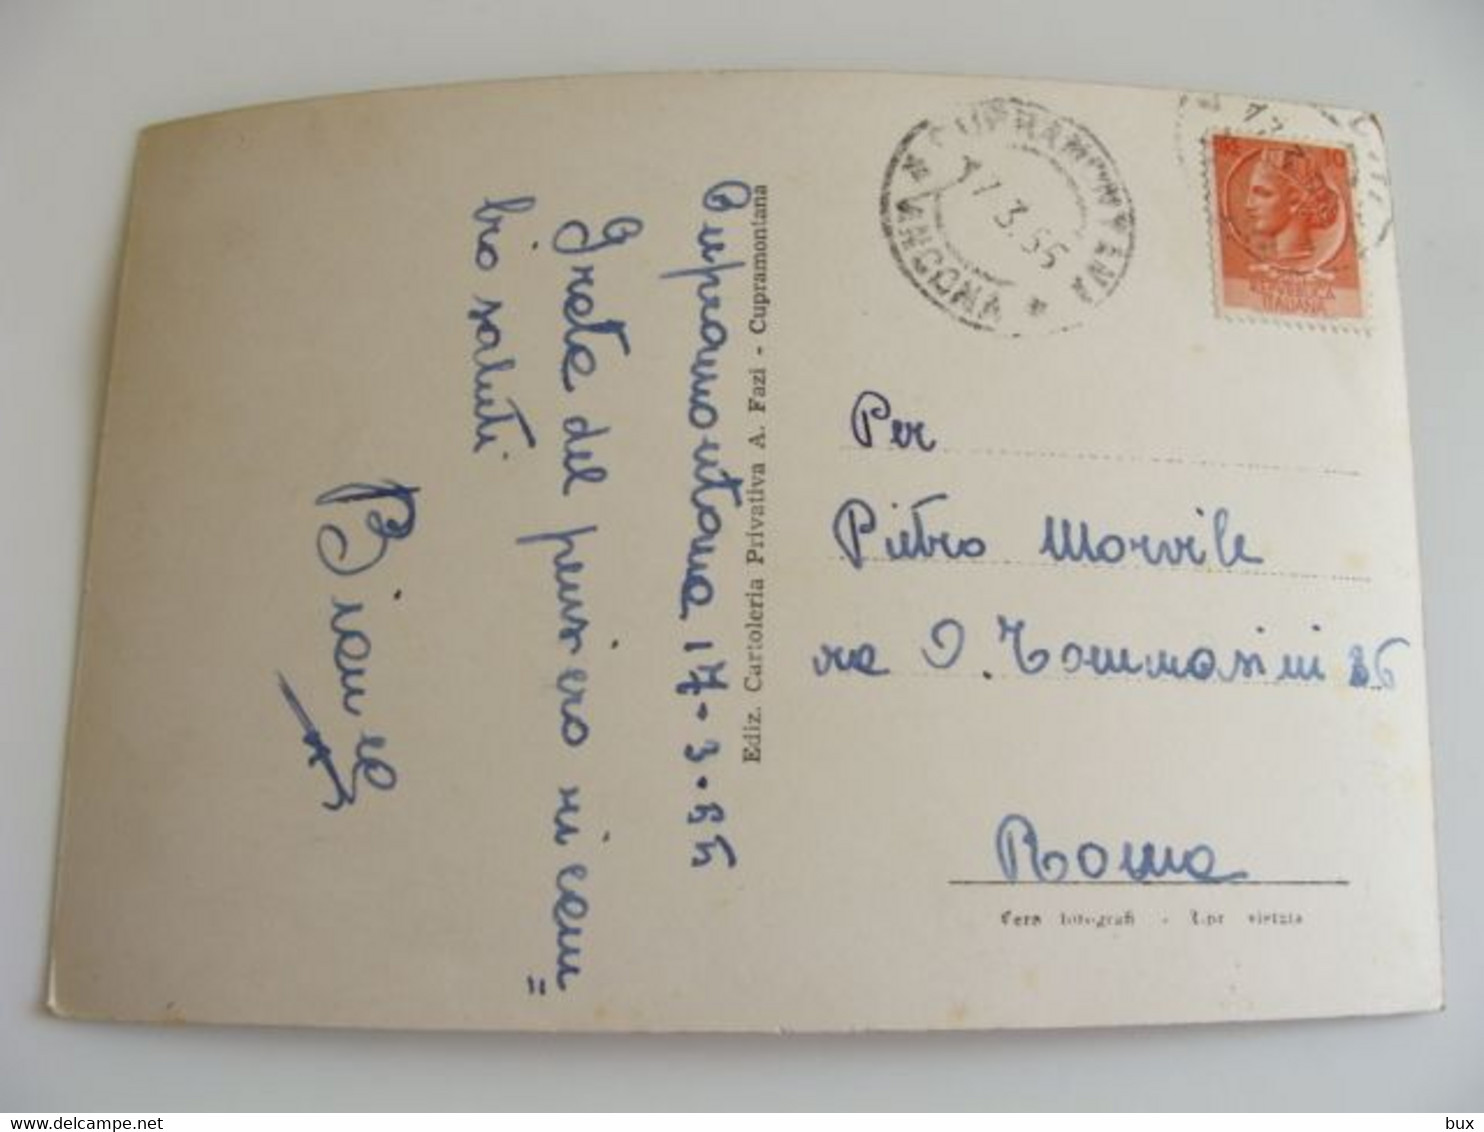 Cupramontana 17-3-55
Grata del pensiero ricam=
bio saluti
Ediz. Cartoleria Privativa A. Fazi - Cupramontana
CUPRAMONTANA
* ANCONA *
17.3.55
10
REPUBBLICA
ITALIANA
Per
Pietro Morvile
via O. Tommasini 26
Roma
Vera fotografi -
www.delcampe.net
bux